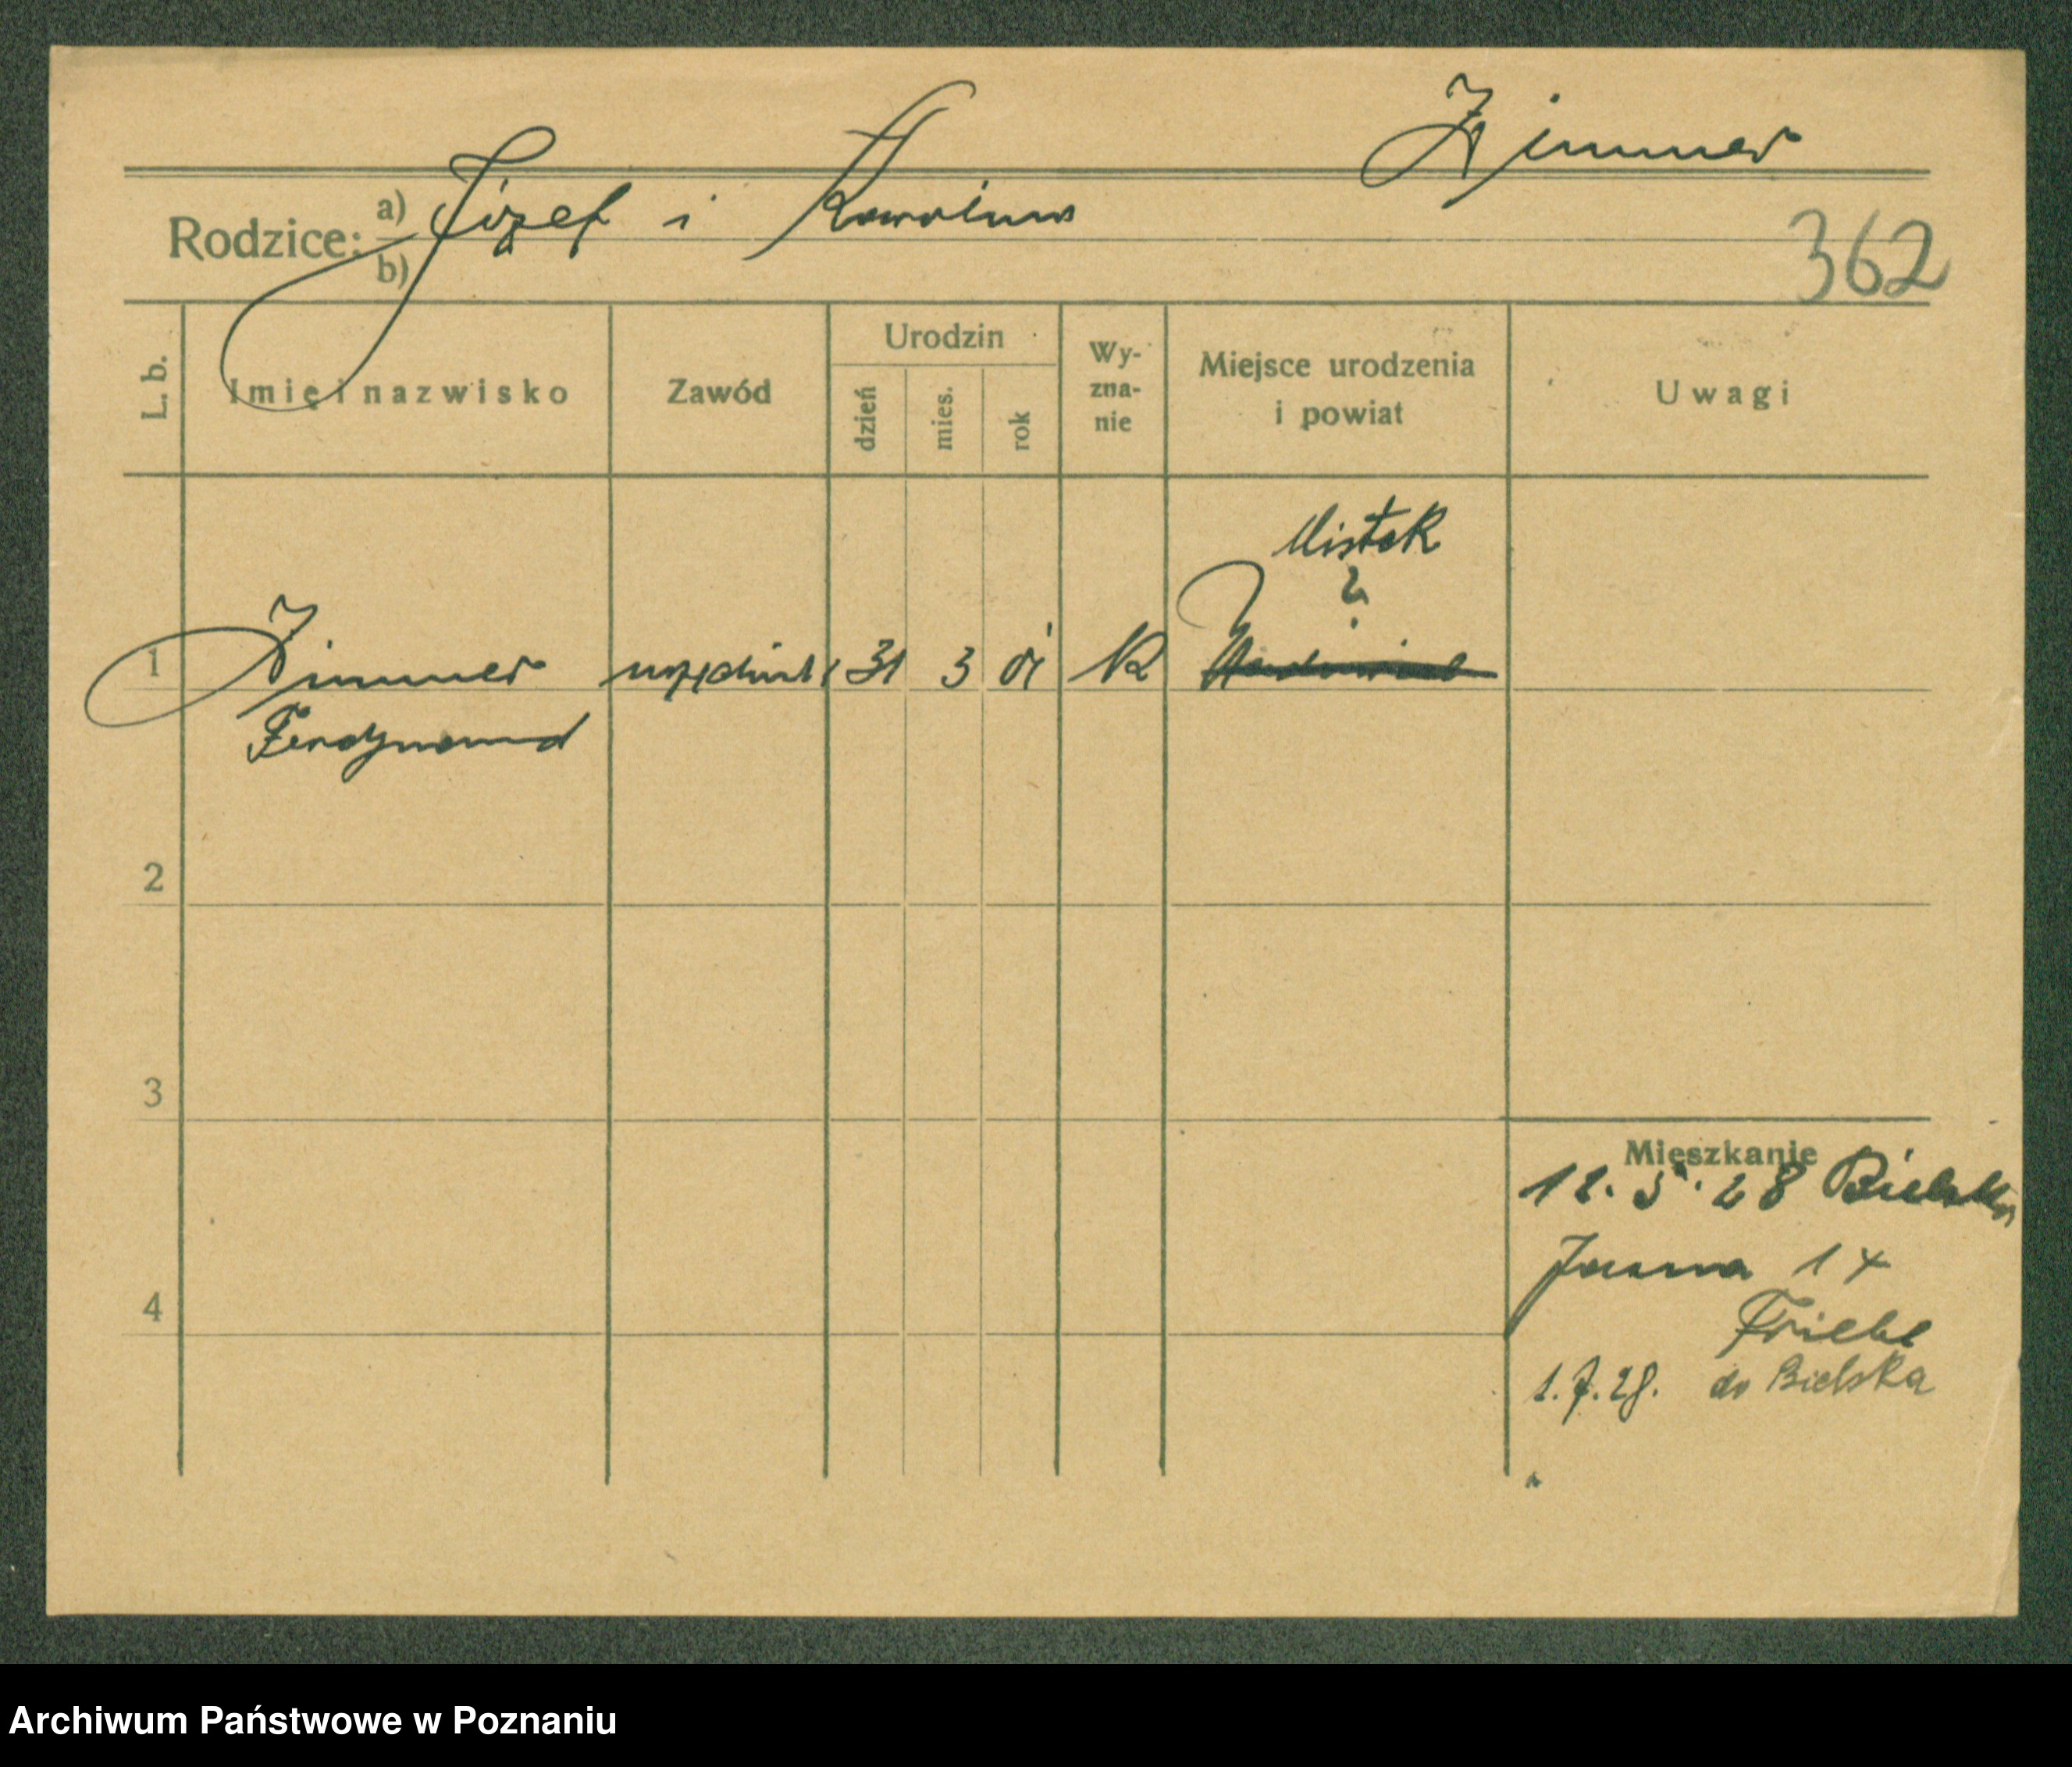 Zimmer
Rodzice: a) Józef i Karolina
b)
362
L. b. Imię i nazwisko Zawód Urodzin dzień mies. rok Wy-zna-nie Miejsce urodzenia i powiat Uwagi
Mistek
?
1 Zimmer urzędnik 31 3 01 K
Ferdynand
2
3
Mieszkanie
12. 5. 28 Bielsko
14
4
Friebe
1. 7. 28. do Bielska
Archiwum Państwowe w Poznaniu